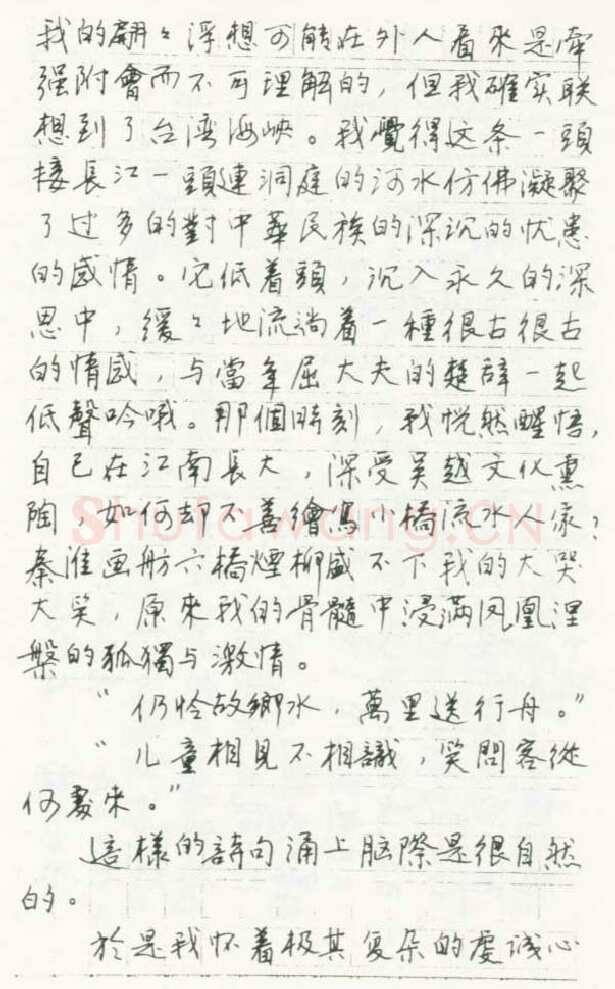 我的翩々浮想可能在外人看來是牽
强附會而不可理解的，但我確实联
想到了台湾海峽。我覺得这条一頭
接長江一頭連洞庭的河水仿佛凝聚
了过多的對中華民族的深沉的忧患
的感情。它低着頭，沉入永久的深
思中，缓々地流淌着一種很古很古
的情感，与當年屈大夫的楚辞一起
低聲吟哦。那個時刻，我恍然醒悟，
自己在江南長大，深受吴越文化熏
陶，如何却不善繪寫小橋流水人家？
秦淮画舫六橋煙柳盛不下我的大哭
大笑，原來我的骨髓中浸满凤凰涅
槃的孤獨与激情。
“仍怜故鄉水，萬里送行舟。”
“儿童相見不相識，笑問客從
何處來。”
這樣的詩句涌上脑際是很自然
的。
於是我怀着极其复杂的虔诚心
Shufawang.CN